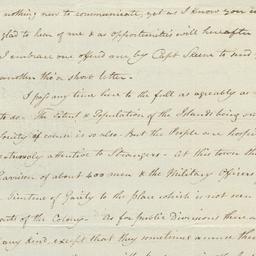 nothing new to communicate, yet as I know you
glad to hear of me & as opportunities will hereafter
I embrace one offered me by Capt Skene to send
another tho' a short letter.
I pass my time here to the full as agreeably as
to do. The Extent & Population of the Islands being
Society of course is so also. But the People are
attentive to Strangers. At this town the
Garrison of about 400 men & the Military Officers
Tincture of Gaiety to the place which is not seen
parts of the Colony. As for public Diversions there
any kind, except that they sometimes amuse